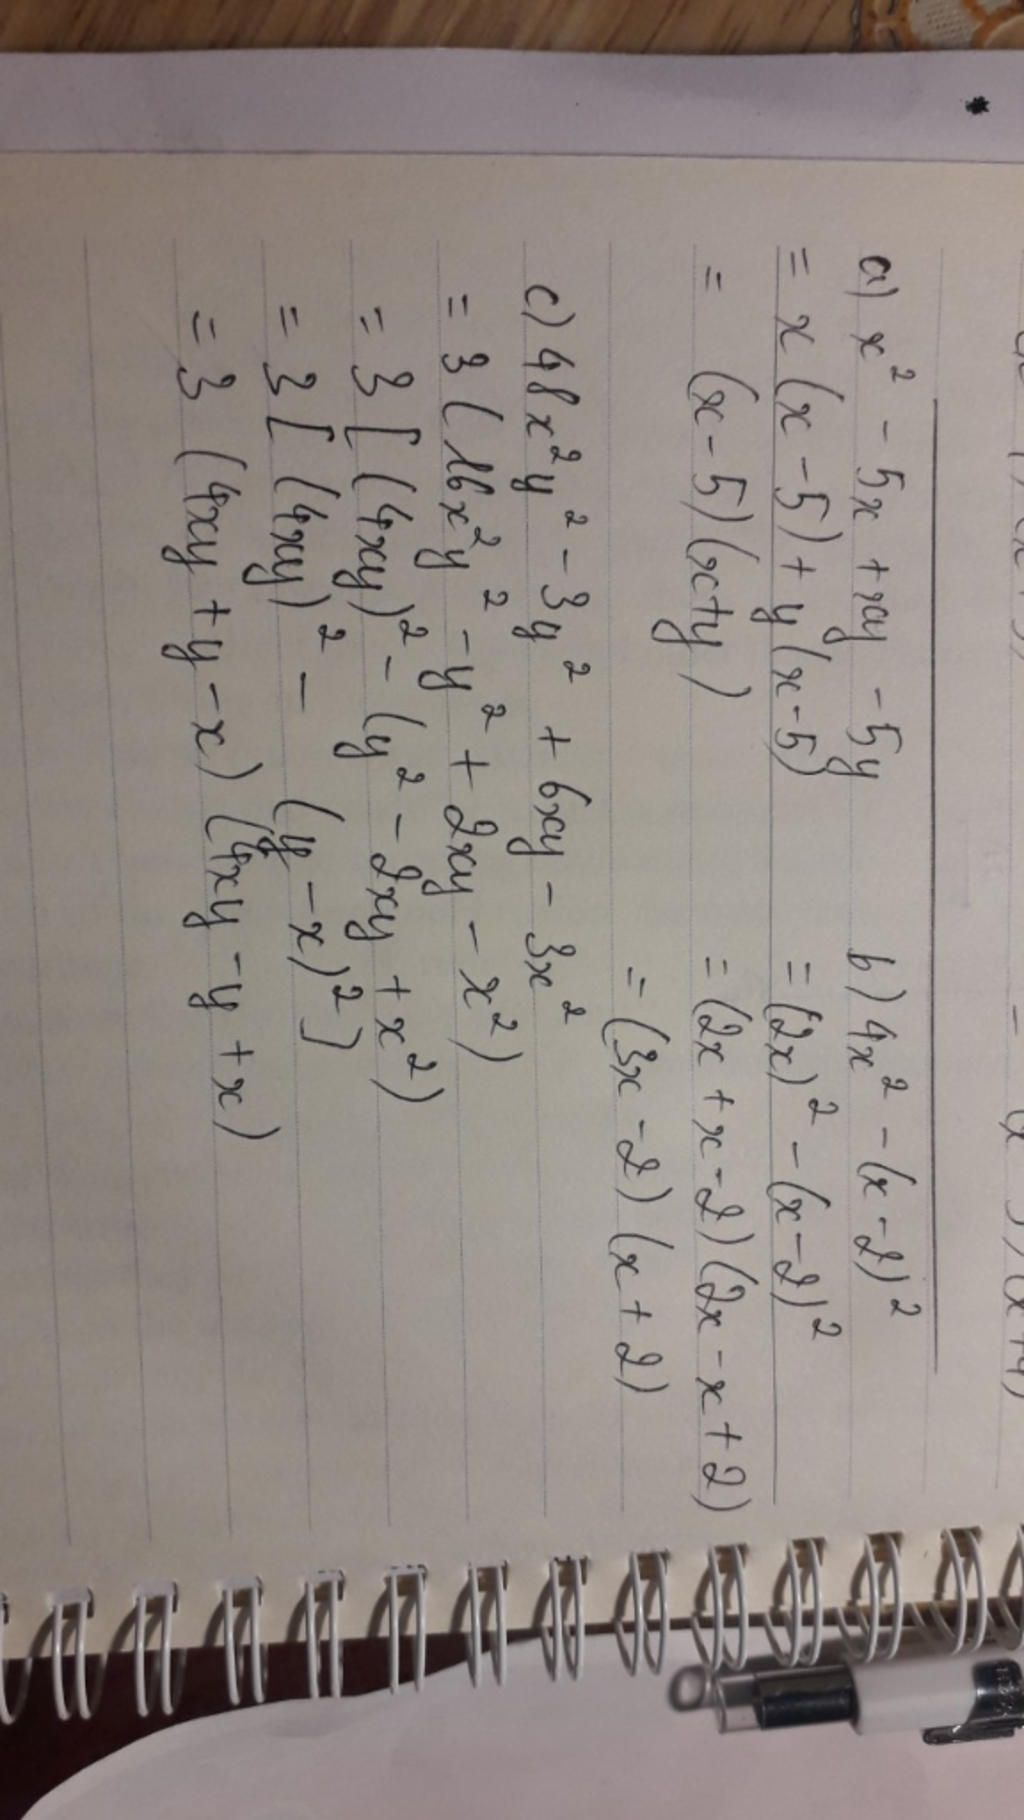 a) x² - 5x + xy - 5y
= x(x - 5) + y(x - 5)
= (x - 5)(x + y)
b) 4x² - (x - 2)²
= (2x)² - (x - 2)²
= (2x + x - 2)(2x - x + 2)
= (3x - 2)(x + 2)
c) 48x²y² - 3y² + 6xy - 3x²
= 3(16x²y² - y² + 2xy - x²)
= 3[(4xy)² - (y² - 2xy + x²)
= 3[(4xy)² - (y - x)²]
= 3 (4xy + y - x)(4xy - y + x)